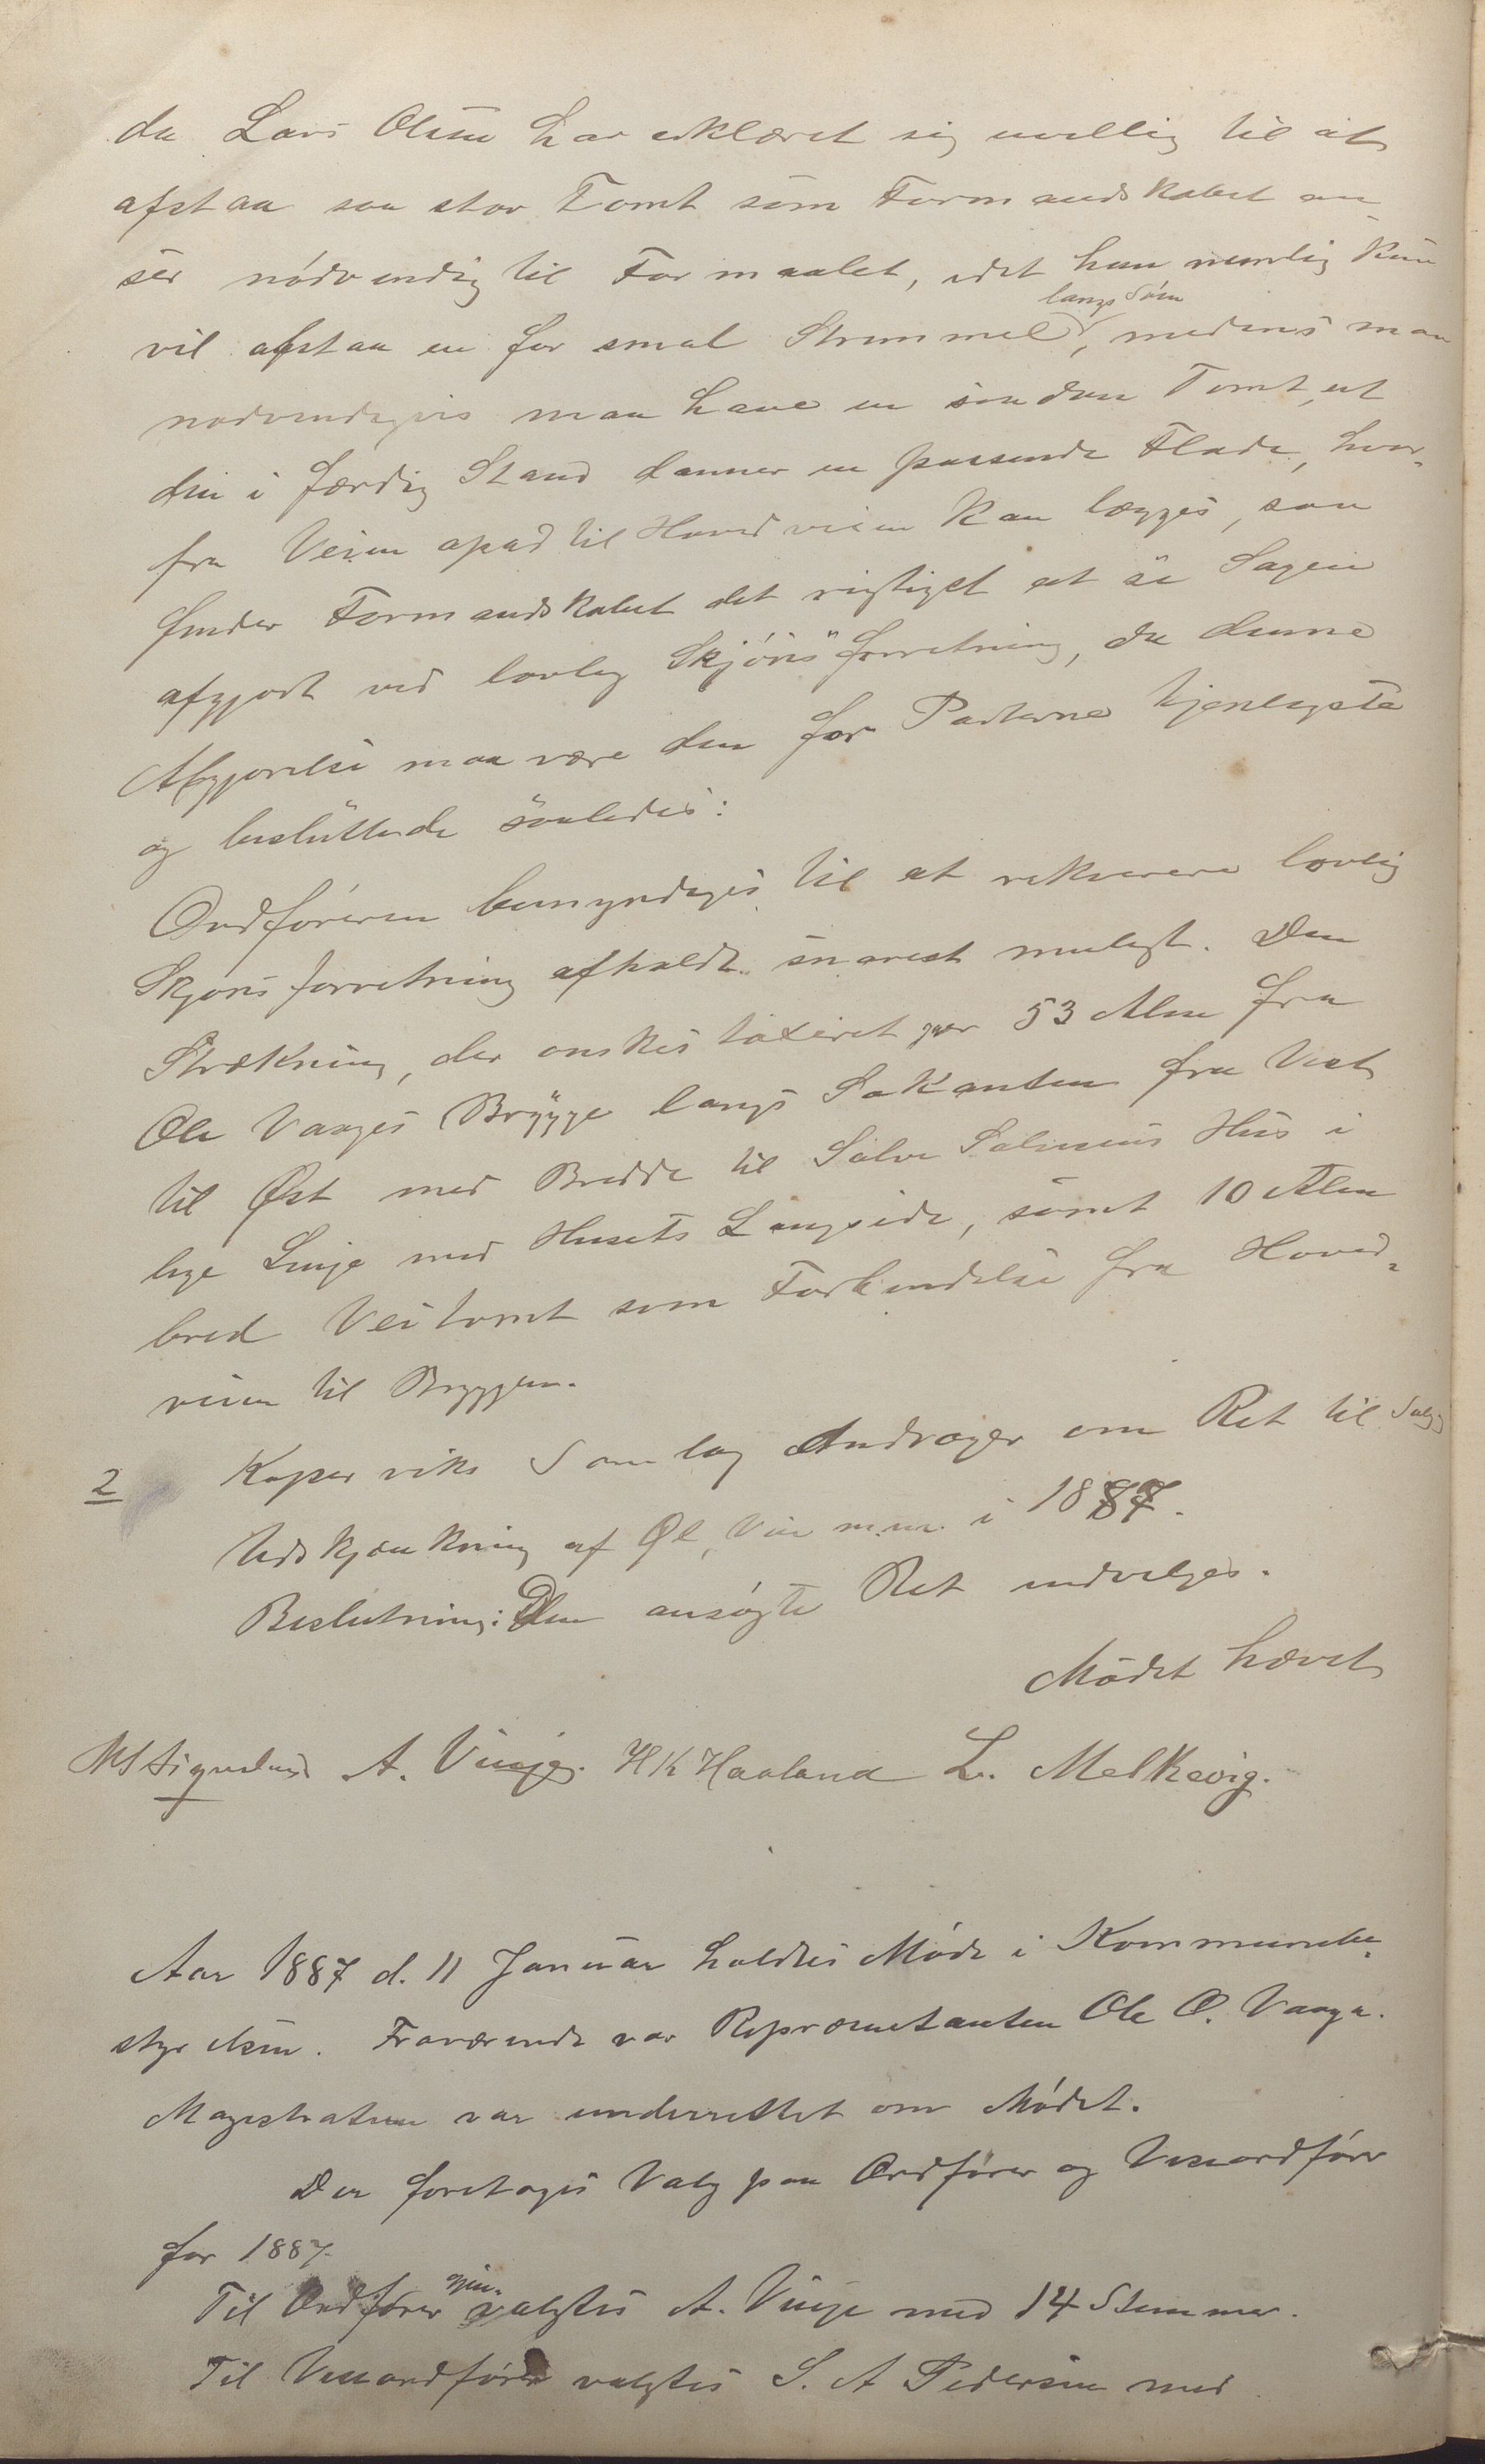 da Lars Olsen har erklæret sig uvillig til at
afstaa saa stor Tomt som Formandskabet an-
ser nödvendig til Formaalet, idet han nemlig kun
vil afstaa en for smal Strimmel langs Söen, medens man
nödvendigvis maa have en saadan Tomt, at
den i færdig Stand danner en passende Flade, hvor-
fra Veien opad til Hovedveien kan lægges, saa
finder Formandskabet det rigtigst at se Sagen
afgjort ved lovlig Skjönsforretning, da denne
Afgjörelse maa være den for Parterne tjenligste
og besluttede saaledes:
Ordföreren bemyndiges til at rekvirere lovlig
Skjönsforretning afholdt snarest muligt. Den
Strækning, der önskes taxeret er 53 Alen fra
Ole Vaages Brygge langs Sökanten fra Vest
til Øst med Bredde til Salve Salvesens Hus i
lige Linje med Husets Langside, samt 10 Alen
bred Veitomt som Forbindelse fra Hoved-
veien til Bryggen.
2 Koperviks Samlag Andrager om Ret til Salg
Udskjænkning af Øl, Vin m.m. i 1887.
Beslutning: Den ansögte Ret indvilges.
Mödet hævet
A. Vinje. H K Haaland L. Melkevig.
Aar 1887 d. 11 Januar holdtes Möde i Kommunebe-
styrelsen. Fraværende var Repræsentanten Ole O. Vaage.
Magistraten var underrettet om Mödet.
Der foretoges Valg paa Ordförer og Viseordförer
for 1887.
Til Ordförer gjenvalgtes A. Vinje med 14 Stemmer.
Til Viseordförer valgtes S. A Pedersen med